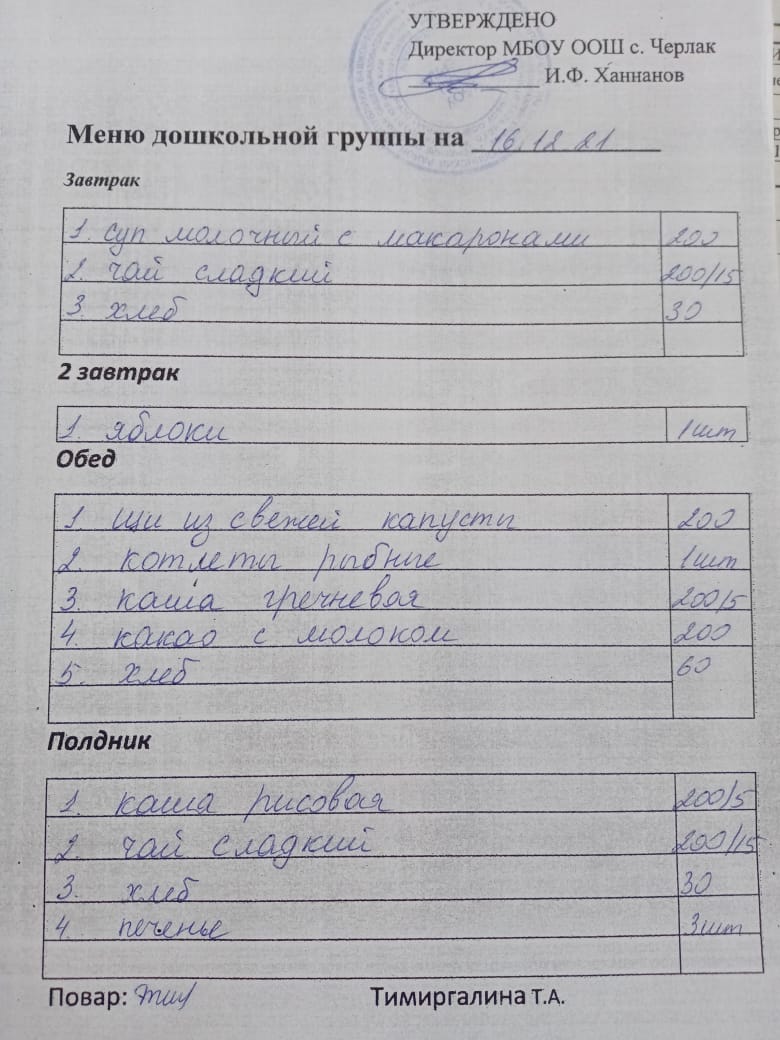 УТВЕРЖДЕНО
Директор МБОУ ООШ с. Черлак
И.Ф. Ханнанов
Меню дошкольной группы на 16.12.21
Завтрак
1. суп молочный с макаронами 200
2. чай сладкий 200/15
3. хлеб 30
2 завтрак
1. яблоки 1шт
Обед
1 щи из свежей капусты 200
2. котлеты рыбные 1шт
3. каша гречневая 200/5
4. какао с молоком 200
5. хлеб 60
Полдник
1. каша рисовая 200/5
2. чай сладкий 200/15
3. хлеб 30
4. печенье 3шт
Повар: Тимиргалина Т.А.